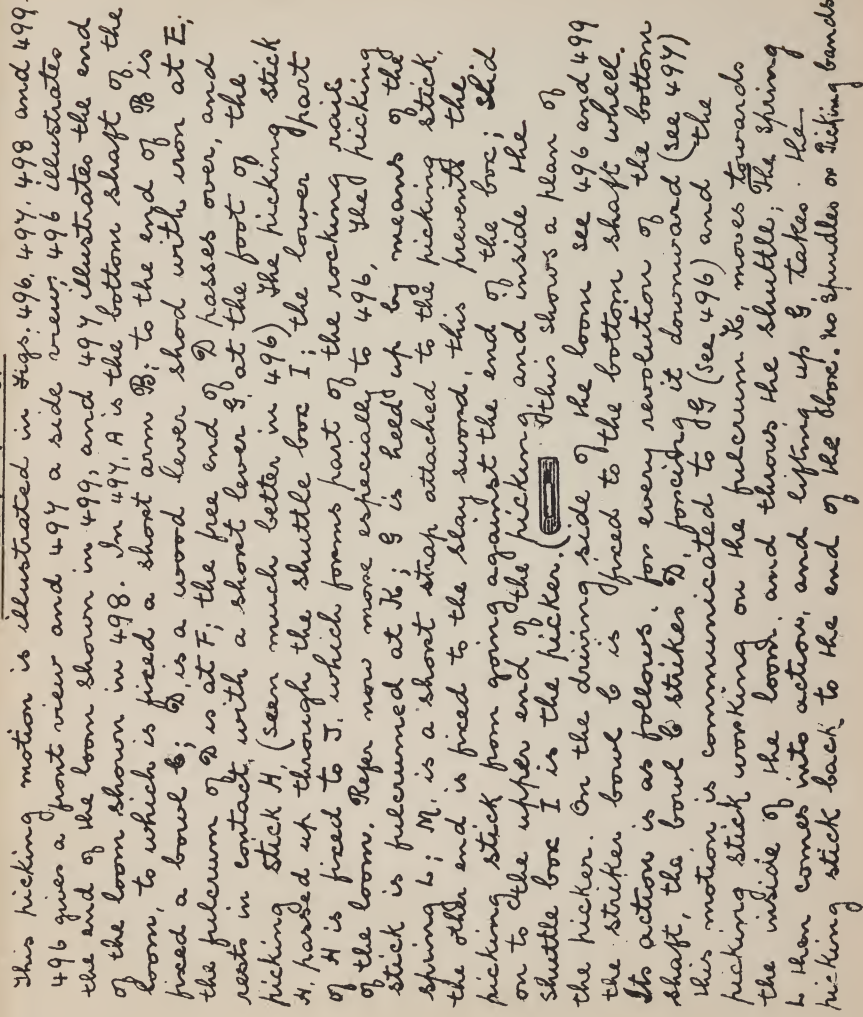 This picking motion is illustrated in Figs. 496, 497, 498 and 499.
496 gives a front view and 497 a side view; 496 illustrates
the end of the loom shown in 499, and 497 illustrates the end
of the loom shown in 498. In 497, A is the bottom shaft of the
loom, to which is fixed a short arm B; to the end of B is
fixed a bowl C; D, is a wood lever shod with iron at E;
the fulcrum of D is at F; the free end of D passes over, and
rests in contact, with a short lever G, at the foot of the
picking stick H, (seen much better in 496) The picking stick
H, passed up through the shuttle box I; the lower part
of H is fixed to J, which forms part of the rocking rail
of the loom. Refer now more especially to 496, The picking
stick is fulcrumed at K; G is held up by means of the
spring L; M, is a short strap attached to the picking stick,
the other end is fixed to the slay sword, this prevents the
picking stick from going against the end of the box; slid
on to the upper end of the picking, and inside the
shuttle box I is the picker. ( this shows a plan of
the picker. On the driving side of the loom see 496 and 499
the striker bowl C is fixed to the bottom shaft wheel.
Its action is as follows. for every revolution of the bottom
shaft, the bowl C strikes D, forcing it downward (see 497)
this motion is communicated to G (see 496) and the
picking stick working on the fulcrum K, moves towards
the inside of the loom, and throws the shuttle; The spring
L then comes into action, and lifting up G takes the
picking stick back to the end of the box. no spindles or Picking bands